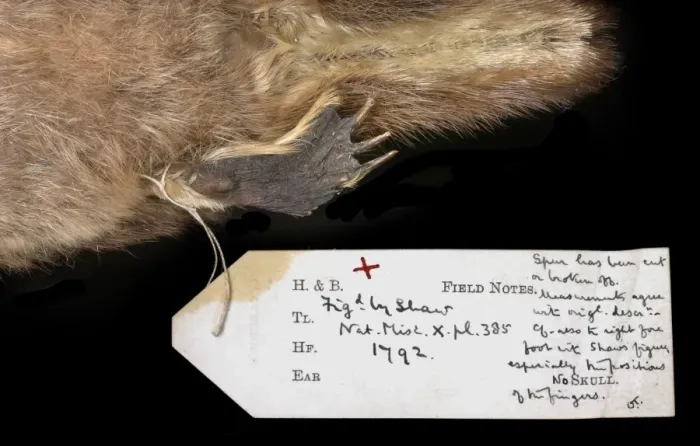 H. & B.
Figd by Shaw
TL. Nat. Misc. X. pl. 385
HF. 1792.
EAR
FIELD NOTES.
Spur has been cut
or broken off.
Measurements agree
with origl. descr:-
Cf. also the right fore
foot with Shaws figure,
especially the positions
NO SKULL.
of the fingers.